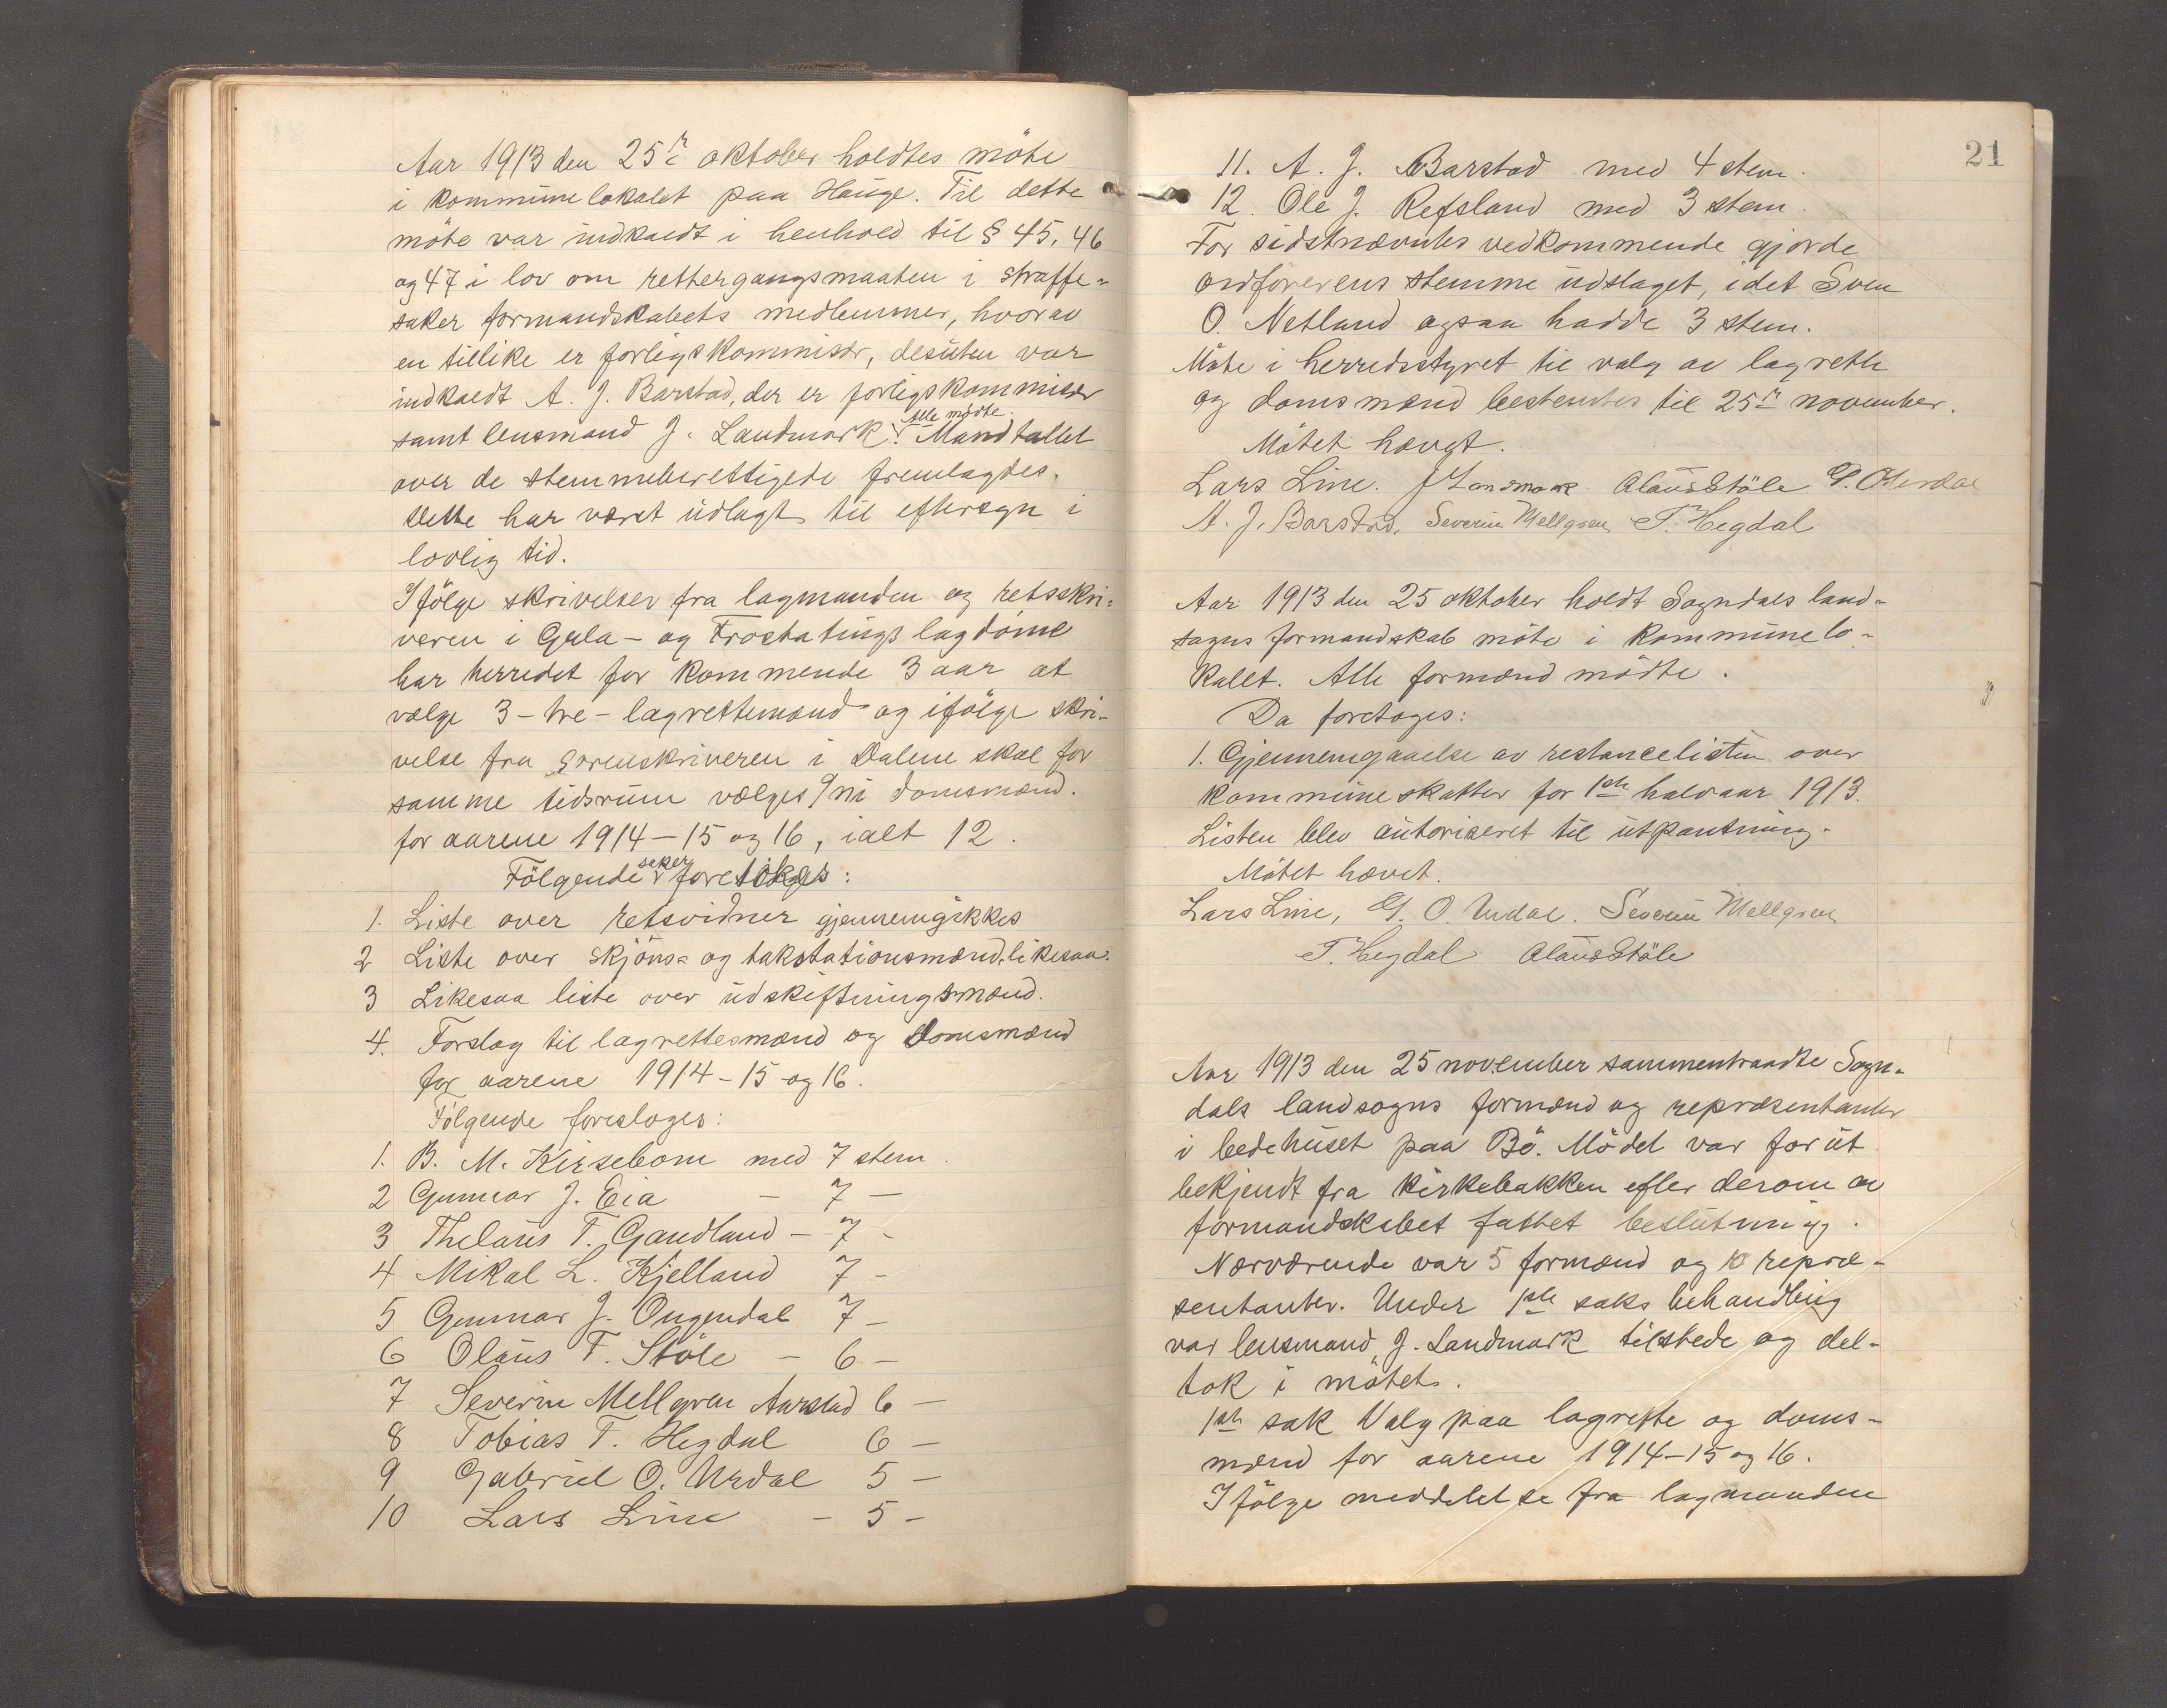 Aar 1913 den 25de oktober holdtes möte
i kommunelokalet paa Hauge. Til dette
möte var indkaldt i henhold til § 45, 46
og 47 i lov om rettergangsmaaten i straffe-
saker formandskabets medlemmer, hvorav
en tillike er forligskommisær, desuten var
indkaldt A. J. Barstad, der er forligskommisær
samt lensmand J. Landmark. Alle mödte. Mandtallet
over de stemmeberettigede fremlagdes.
Dette har været udlagt til eftersyn i
lovlig tid.
Ifölge skrivelser fra lagmanden og retsskri-
veren i Gula- og Frostatings lagdöme
har herredet for kommende 3 aar at
vælge 3-tre-lagrettemænd og ifölge skri-
velse fra sorenskriveren i Dalene skal for
samme tidsrum vælges 9 ni domsmænd.
for aarene 1914-15 og 16, ialt 12.
Fölgende saker foretokes:
1. Liste over retsvidner gjennemgikkes
2 Liste over skjöns- og takstationsmænd, likesaa.
3 Likesaa liste over udskiftningsmænd.
4. Forslag til lagrettesmænd og domsmænd
for aarene 1914-15-og 16.
Fölgende foresloges:
1. B. M. Kirsebom med 7 stem.
2 Gunnar J. Eia - 7 -
3 Thelaus T. Gandland - 7 -
4 Mikal L. Kjelland 7 -
5 Gunnar J. Ougendal 7 -
6 Olaus T. Stöle - 6 -
7 Severin Mellgren Aarstad 6 -
8 Tobias T. Hegdal 6 -
9 Gabriel O. Urdal 5 -
10 Lars Line - 5 -
21
11. A. J. Barstad med 4 stem.
12. Ole J. Refsland med 3 stem.
For sidstnævntes vedkommende gjorde
ordförerens stemme udslaget, idet Sven
O. Netland ogsaa hadde 3 stem.
Möte i herredsstyret til valg av lagrette
og domsmænd bestemtes til 25de november.
Mötet hævet.
Lars Line. J Landmark Olaus Stöle G. O. Urdal
A. J. Barstad. Severin Mellgren T. Hegdal
Aar 1913 den 25 oktober holdt Sogndals land-
sogns formandskab möte i kommunelo-
kalet. Alle formænd mödte.
Da foretoges:
1. Gjennemgaaelse av restancelisten over
kommuneskatter for 1ste halvaar 1913.
Listen blev autoriseret til utpantning.
Mötet hævet.
Lars Line, G. O. Urdal. Severin Mellgren
T. Hegdal Olaus Stöle
Aar 1913 den 25 november sammentraadte Sogn-
dals landsogns formænd og repræsentanter
i bedehuset paa Bö. Mödet var forut
bekjendt fra kirkebakken efter derom av
formandskabet fattet beslutning.
Nærværende var 5 formænd og 10 repræ-
sentanter. Under 1ste saks behandling
var lensmand, J. Landmark tilstede og del-
tok i mötet.
1ste sak Valg paa lagrette og doms-
mænd for aarene 1914-15 og 16.
Ifölge meddelelse fra lagmanden